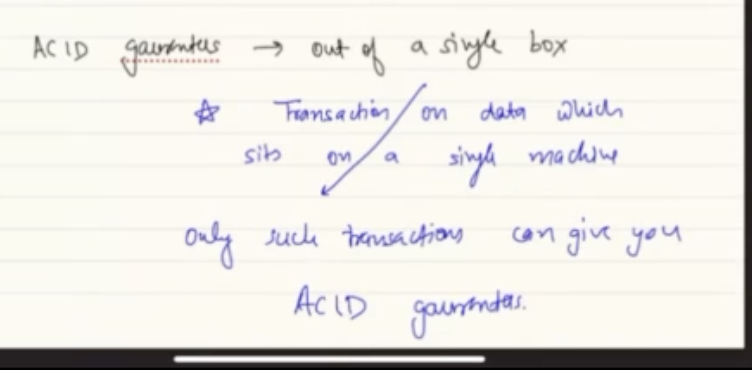 ACID gaurentees → out of a single box
☆ Transaction on data which
sits on a single machine
only such transactions can give you
ACID gaurentees.